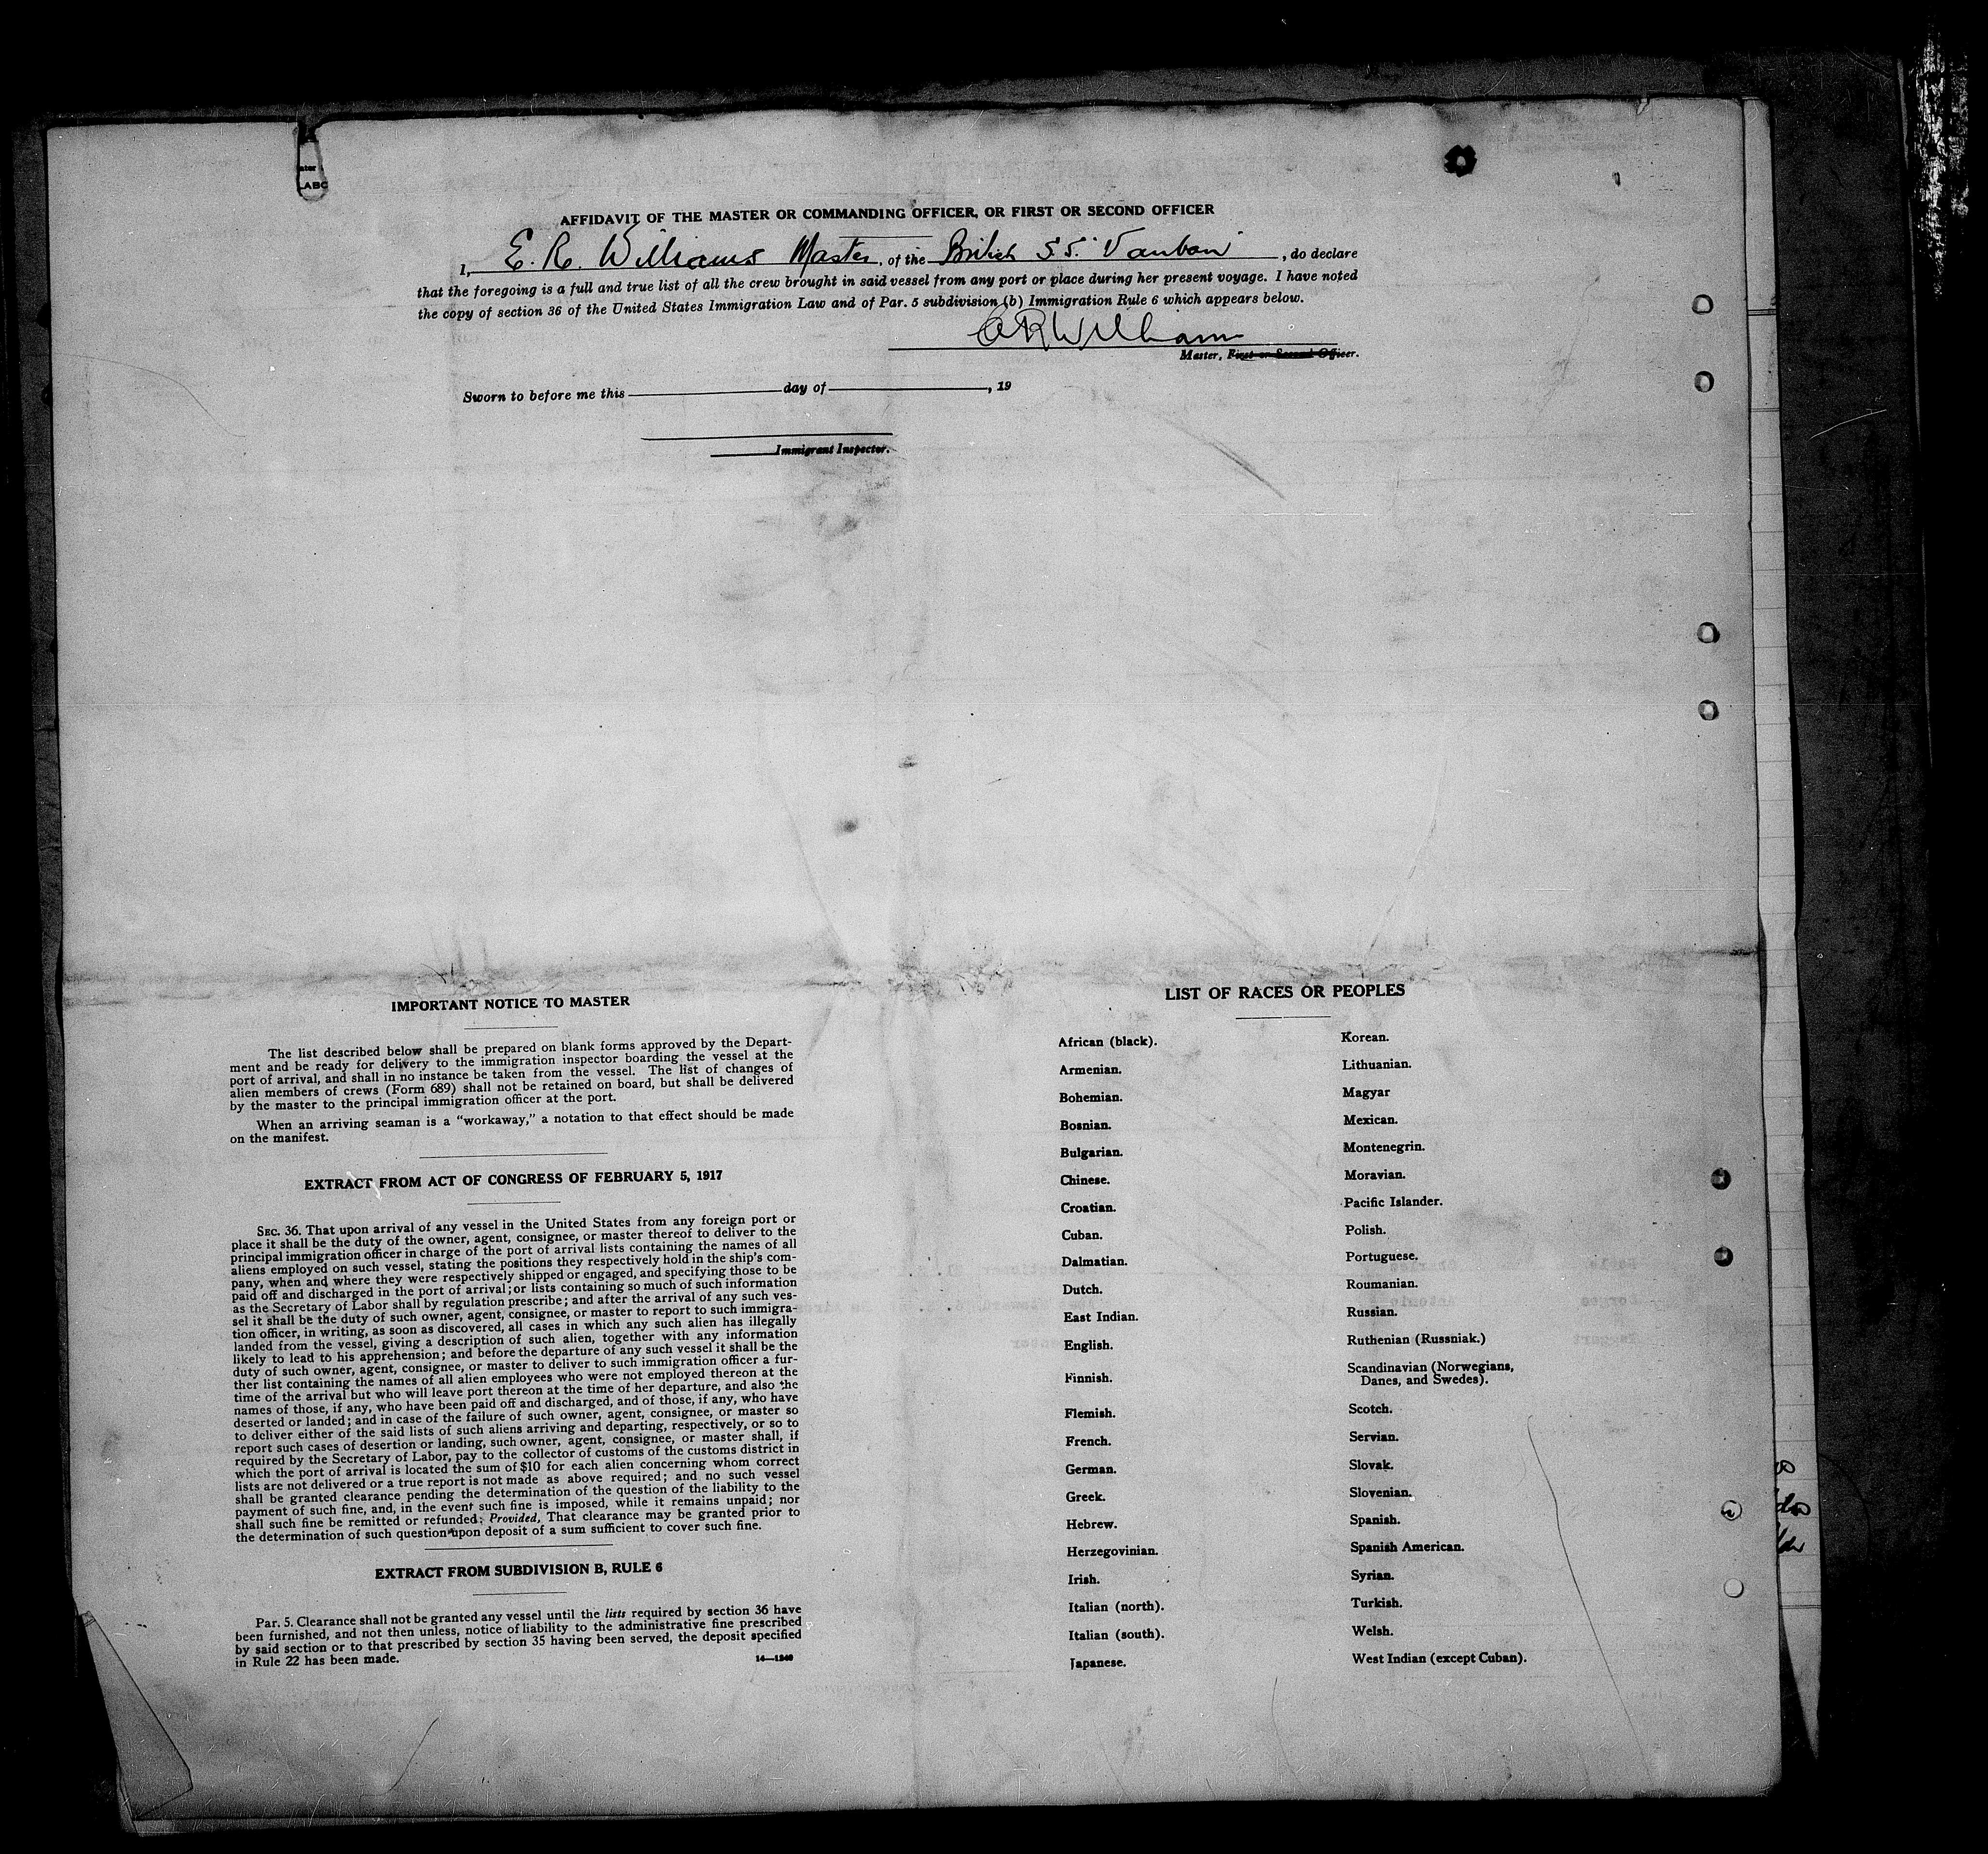 AFFIDAVIT OF THE MASTER OR COMMANDING OFFICER, OR FIRST OR SECOND OFFICER
I, E. R. Williams Master, of the British S.S. "Vauban", do declare
that the foregoing is a full and true list of all the crew brought in said vessel from any port or place during her present voyage. I have noted
the copy of section 36 of the United States Immigration Law and of Par. 5 subdivision (b) Immigration Rule 6 which appears below.
ERWilliams
Master, First or Second Officer.
Sworn to before me this day of , 19
Immigrant Inspector.
IMPORTANT NOTICE TO MASTER
The list described below shall be prepared on blank forms approved by the Depart-
ment and be ready for delivery to the immigration inspector boarding the vessel at the
port of arrival, and shall in no instance be taken from the vessel. The list of changes of
alien members of crews (Form 689) shall not be retained on board, but shall be delivered
by the master to the principal immigration officer at the port.
When an arriving seaman is a "workaway," a notation to that effect should be made
on the manifest.
EXTRACT FROM ACT OF CONGRESS OF FEBRUARY 5, 1917
SEC. 36. That upon arrival of any vessel in the United States from any foreign port or
place it shall be the duty of the owner, agent, consignee, or master thereof to deliver to the
principal immigration officer in charge of the port of arrival lists containing the names of all
aliens employed on such vessel, stating the positions they respectively hold in the ship's com-
pany, when and where they were respectively shipped or engaged, and specifying those to be
paid off and discharged in the port of arrival; or lists containing so much of such information
as the Secretary of Labor shall by regulation prescribe; and after the arrival of any such ves-
sel it shall be the duty of such owner, agent, consignee, or master to report to such immigra-
tion officer, in writing, as soon as discovered, all cases in which any such alien has illegally
landed from the vessel, giving a description of such alien, together with any information
likely to lead to his apprehension; and before the departure of any such vessel it shall be the
duty of such owner, agent, consignee, or master to deliver to such immigration officer a fur-
ther list containing the names of all alien employees who were not employed thereon at the
time of the arrival but who will leave port thereon at the time of her departure, and also the
names of those, if any, who have been paid off and discharged, and of those, if any, who have
deserted or landed; and in case of the failure of such owner, agent, consignee, or master so
to deliver either of the said lists of such aliens arriving and departing, respectively, or so to
report such cases of desertion or landing, such owner, agent, consignee, or master shall, if
required by the Secretary of Labor, pay to the collector of customs of the customs district in
which the port of arrival is located the sum of $10 for each alien concerning whom correct
lists are not delivered or a true report is not made as above required; and no such vessel
shall be granted clearance pending the determination of the question of the liability to the
payment of such fine, and, in the event such fine is imposed, while it remains unpaid; nor
shall such fine be remitted or refunded: Provided, That clearance may be granted prior to
the determination of such question upon deposit of a sum sufficient to cover such fine.
EXTRACT FROM SUBDIVISION B, RULE 6
Par. 5. Clearance shall not be granted any vessel until the lists required by section 36 have
been furnished, and not then unless, notice of liability to the administrative fine prescribed
by said section or to that prescribed by section 35 having been served, the deposit specified
in Rule 22 has been made.
14—1240
LIST OF RACES OR PEOPLES
African (black).
Armenian.
Bohemian.
Bosnian.
Bulgarian.
Chinese.
Croatian.
Cuban.
Dalmatian.
Dutch.
East Indian.
English.
Finnish.
Flemish.
French.
German.
Greek.
Hebrew.
Herzegovinian.
Irish.
Italian (north).
Italian (south).
Japanese.
Korean.
Lithuanian.
Magyar
Mexican.
Montenegrin.
Moravian.
Pacific Islander.
Polish.
Portuguese.
Roumanian.
Russian.
Ruthenian (Russniak.)
Scandinavian (Norwegians,
Danes, and Swedes).
Scotch.
Servian.
Slovak.
Slovenian.
Spanish.
Spanish American.
Syrian.
Turkish.
Welsh.
West Indian (except Cuban).